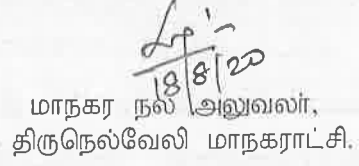 18/8/20
மாநகர நல அலுவலர்,
திருநெல்வேலி மாநகராட்சி.